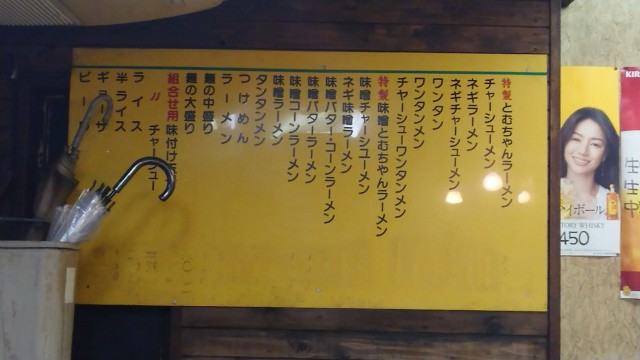 特製とむちゃんラーメン
チャーシューメン
ネギラーメン
ネギチャーシューメン
ワンタン
ワンタンメン
チャーシューワンタンメン
特製味噌とむちゃんラーメン
味噌チャーシューメン
ネギ味噌ラーメン
味噌バター・コーンラーメン
味噌バターラーメン
味噌コーンラーメン
味噌ラーメン
タンタンメン
つけめん
ラーメン
麺の中盛り
麺の大盛り
組合せ用 味付け
〃 チャーシュー
ライス
半ライス
ギョーザ
ビール
イボール
TORY WHISKY
450
KIR
生
生
中